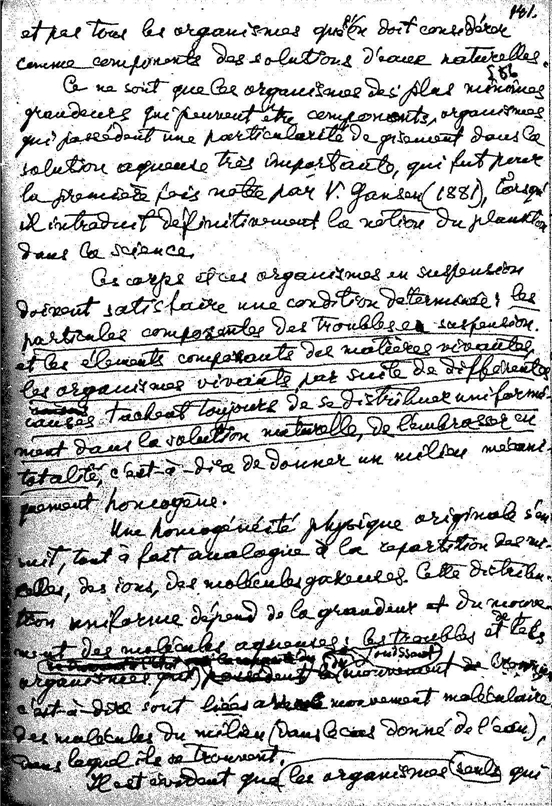 181.
et pas tous les organismes qu'on doit considérer
comme components des solutions d'eaux naturelles.
§86
Ce ne sont que les organismes des plus minimes
grandeurs qui peuvent être components, organismes
qui possèdent une particularité de gisement dans la
solution aqueuse très importante, qui fut pour
la première fois notée par V. Gansen (1881), lorsqu'
il introduit definitivement la notion du plankton
dans la science.
Ces corps et ces organismes en suspension
doivent satisfaire une condition determinée: les
particules composantes des troubles en suspension
et les élements composants des matières vivantes,
les organismes vivants par suite de differentes
causes tachent toujours de se distribuer uniformé-
ment dans la solution naturelle, de l'embrasser en
totalité, c'est-à-dire de donner un milieu mécani-
quement homogène.
Une homogénéité physique originale s'en
suit, tout à fait analogue à la repartition des mi-
celles, des ions, des molécules gazeuses. Cette distribu-
tion uniforme dépend de la grandeur et du mouve-
ment des molécules aqueuses: les troubles et de tels
organismes qui jouissent mouvement de
c'est-à-dire sont liées mouvement moléculaire
des molécules du milieu (dans le cas donné de l'eau),
dans lequel ils se trouvent.
Il est évident que les organismes seuls qui